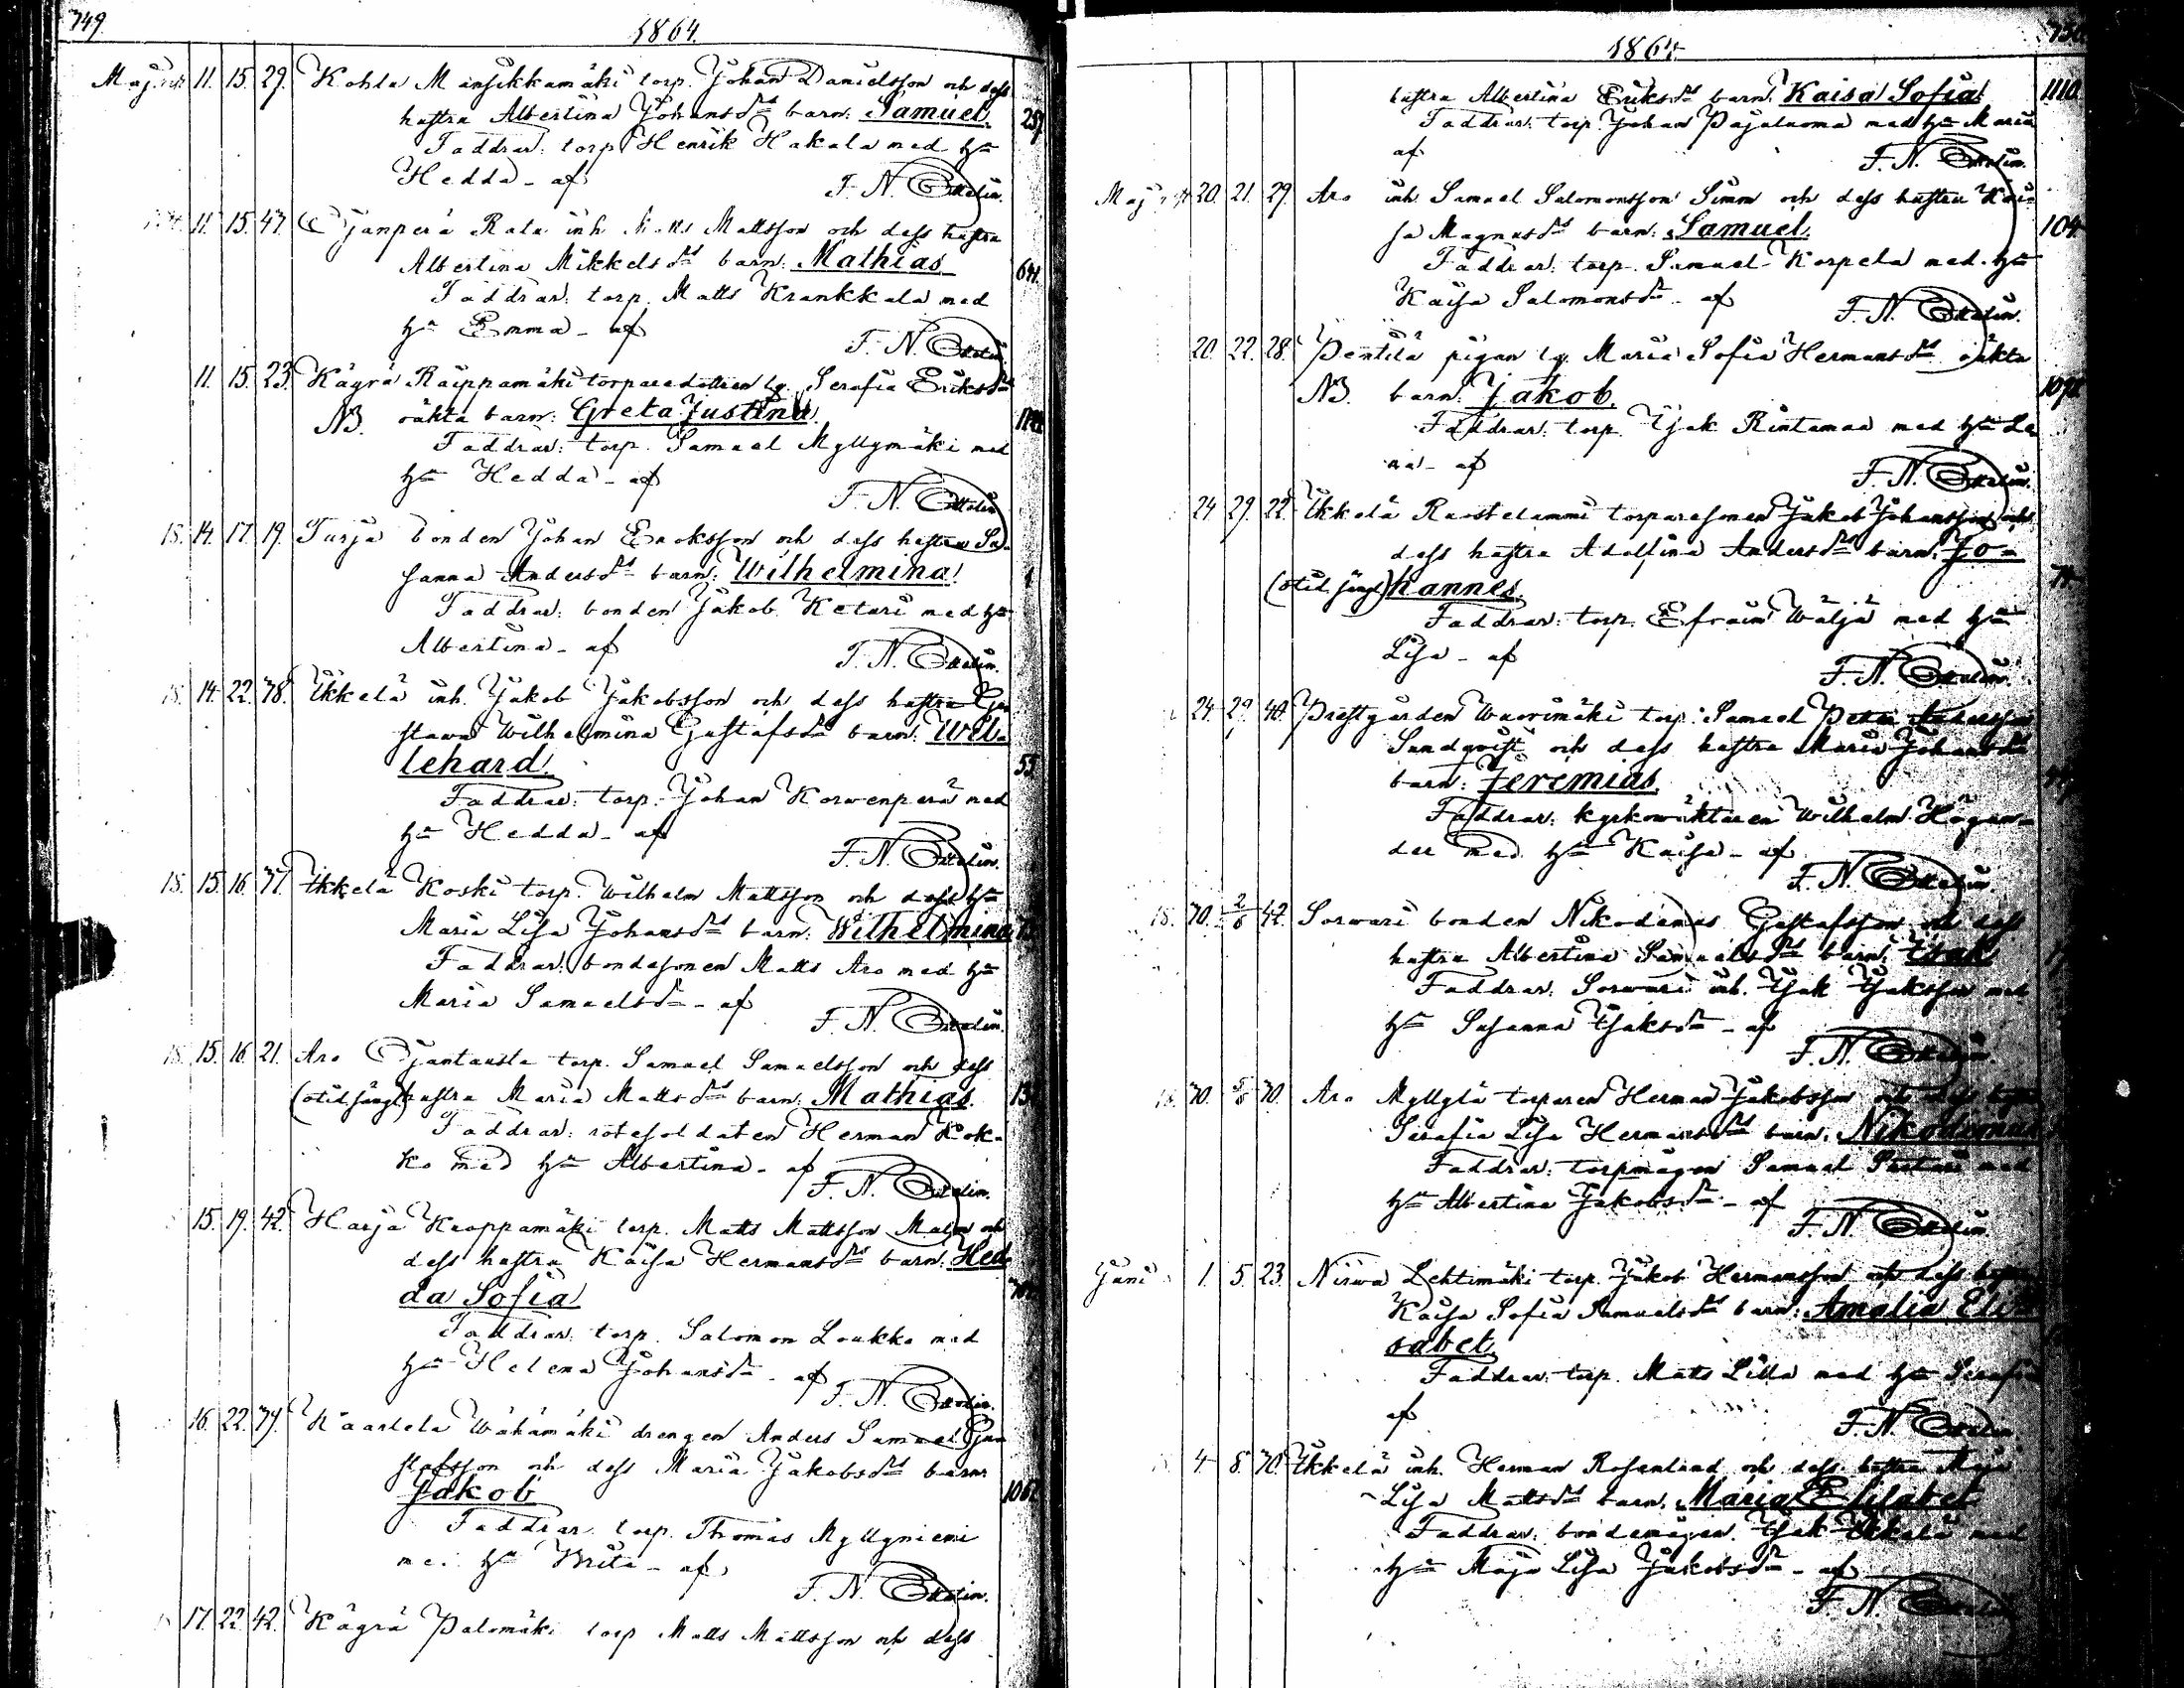 749.
1864.
Maj. 11. 15. 29. Kohla Mansikkamäki torp. Johan Danielsson och dess
hustru Albertina Johansdr barn: Samuel. 257
Faddrar: torp. Henrik Hakala med hu
Hedda - af
F. N.
11. 15. 47. Ojanperä Rala inh. Matts Mattsson och dess hustru
Albertina Mikkelsdr barn: Mathias 641.
Faddrar: torp. Matts Krankkala med
hu Emma - af
F. N.
11. 15. 23. Kägrä Räippamäki torparedottren lg. Serafia Eriksdr
NB. oäkta barn: Greta Justina.
Faddrar: torp. Samuel Myllymäki med
hu Hedda - af
F. N.
18. 14. 17. 19. Turja bonden Johan Enoksson och dess hustru Su-
sanna Andersdr barn: Wilhelmina.
Faddrar: bonden Jakob Ketari med hu
Albertina - af
F. N.
18. 14. 22. 78. Ikkelä inh. Jakob Jakobsson och dess hustru Gu-
stava Wilhelmina Gustafsdr barn: Wil-
lehard. 55.
Faddrar: torp. Johan Korwenperä med
hu Hedda - af
F. N.
18. 15. 16. 77. Ikkelä Koski torp. Wilhelm Mattsson och dess hu
Maria Lisa Johansdr barn: Wilhelmina
Faddrar: bondesonen Matts Aro med hu
Maria Samuelsdr - af
F. N.
18. 15. 16. 21. Aro Ojantausta torp. Samuel Samuelsson och dess
(otid. föngl.) hustru Maria Mattsdr barn: Mathias.
Faddrar: rotesoldaten Herman Kok-
ko med hu Albertina - af
F. N.
15. 19. 42. Harja Kroppamäki torp. Matts Mattsson Malm och
dess hustru Kaisa Hermansdr barn: Hed-
da Sofia
Faddrar: torp. Salomon Loukko med
hu Helena Johansdr - af
F. N.
16. 22. 79. Kaartela Wähämäki drengen Anders Samuel Gu-
stafsson och dess Maria Jakobsdr barn
Jakob 1062
Faddrar: torp. Thomas Myllyniemi
med hu Brita - af
F. N.
17. 22. 42. Kägrä Palomäki torp Matts Mattsson och dess
1864.
hustru Albertina Eriksdr barn: Kaisa Sofia. 1110.
Faddrar: torp. Johan Pajulaoma med hu Maria
af
F. N.
Maj 20. 21. 29. Aro inh. Samuel Salomonsson Simm och dess hustru Kai-
sa Magnusdr barn: Samuel. 104
Faddrar: torp. Samuel Korpela med hu
Kaisa Salomonsdr - af
F. N.
20. 22. 28. Pentilä pigan lg. Maria Sofia Hermansdr oäkta
NB. barn: Jakob.
Faddrar: torp. Isak Rintamaa med hu Le
na - af
F. N.
24 29. 22. Ikkelä Ruostelammi torparesonen Jakob Johansson och
dess hustru Adolfina Andersdr barn: Jo-
(otid. föngl.) hannes.
Faddrar: torp. Efraim Wäljä med hu
Lisa - af
F. N.
24. 29. 40. Prestgården Wuorimäki torp. Samuel Petter Andersson
Sandqvist och dess hustru Maria Johansdr
barn: Jeremias.
Faddrar: kyrkowäktaren Wilhelm Högan-
der med hu Kaisa - af
F. N.
18. 30. 2/6 42. Sorwari bonden Nikodemus Gustafsson och dess
hustru Albertina Samuelsdr barn: Isak
Faddrar: Sorwari inh. Isak Isaksson med
hu Susanna Isaksdr - af
F. N.
30. 5/6 30. Aro Myllylä torparen Herman Jakobsson och dess hustru
Serafia Lisa Hermansdr barn: Nikodemus
Faddrar: torpmågen Samuel Santari med
hu Albertina Jakobsdr - af
F. N.
Juni 1. 5. 23. Nirwa Lehtimäki torp. Jakob Hermansson och dess hustru
Kaisa Sofia Samuelsdr barn: Amalia Eli-
sabet.
Faddrar: torp. Matts Lilla med hu Serafia
af
F. N.
4 8. 30. Ikkelä inh. Herman Rosenlund och dess hustru Maja
Lisa Mattsdr barn: Maria Elisabet
Faddrar: bondemågen Isak Ikkelä med
hu Maja Lisa Jakobsdr - af
F. N.